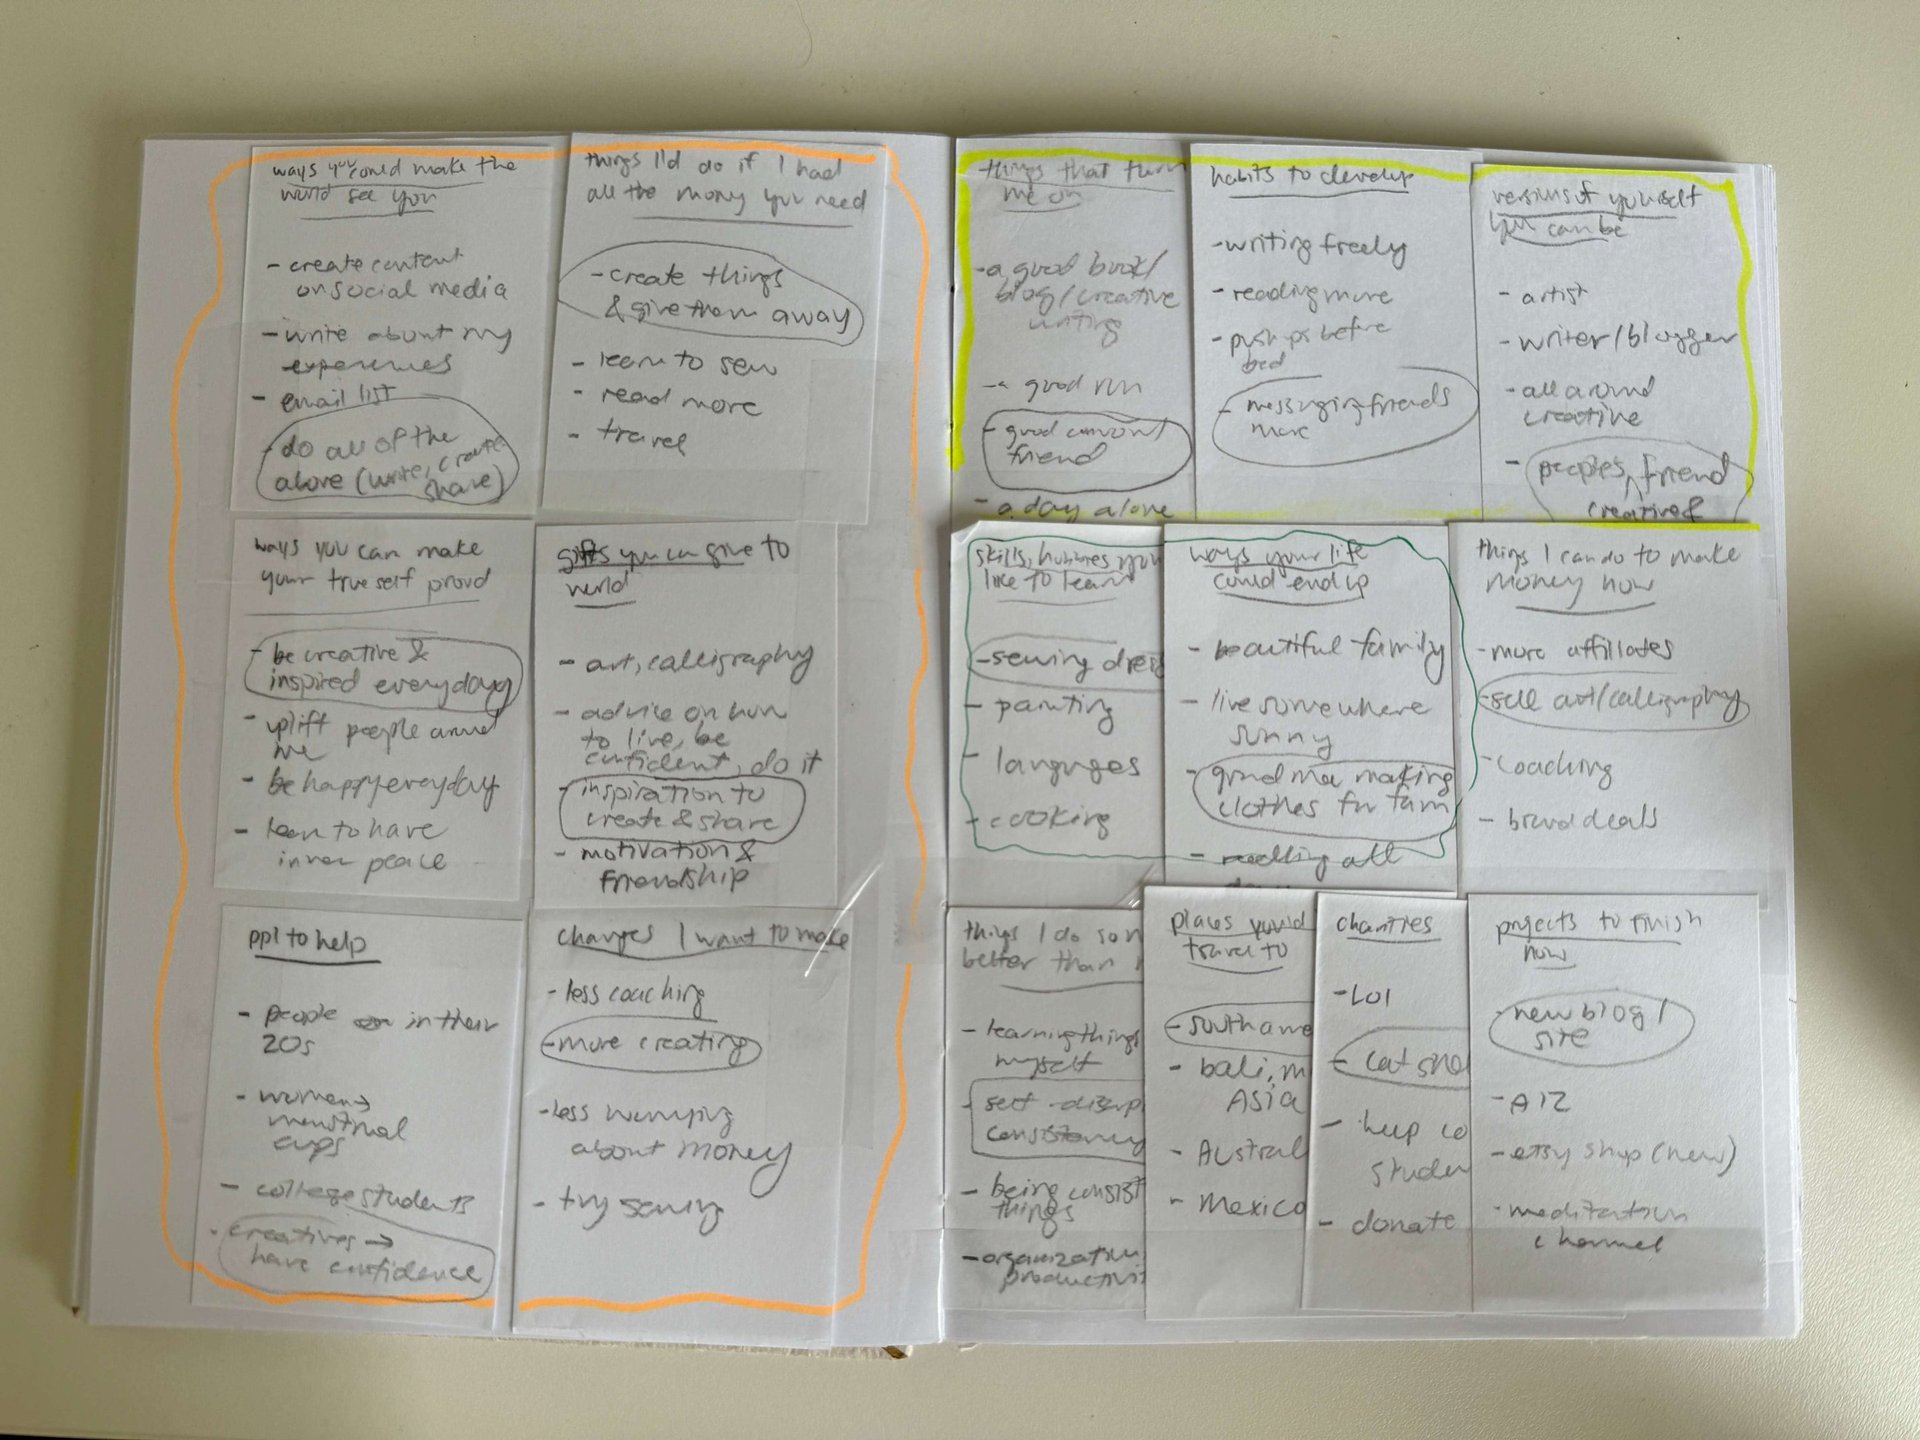 ways you could make the
world see you
- create content
on social media
- write about my
experiences
- email list
- do all of the
above (write, create
share)
things I'd do if I had
all the money you need
- create things
& give them away
- learn to sew
- read more
- travel
ways you can make
your true self proud
- be creative &
inspired everyday
- uplift people around
me
- be happy everyday
- learn to have
inner peace
gifts you can give to
world
- art, calligraphy
- advice on how
to live, be
confident, do it
- inspiration to
create & share
- motivation &
friendship
ppl to help
- people in their
20s
- women →
menstrual
cups
- college students
- creatives →
have confidence
changes I want to make
- less coaching
- more creating
- less worrying
about money
- try sewing
things that turn
me on
- a good book/
blog/creative
writing
- a good run
- good convo w/
friend
- a day alone
habits to develop
- writing freely
- reading more
- pushups before
bed
- messaging friends
more
versions of yourself
you can be
- artist
- writer/blogger
- all around
creative
- peoples friend
creative &
skills, hobbies you
like to learn
- sewing dress
- painting
- languges
- cooking
ways your life
could end up
- beautiful family
- live somewhere
sunny
- grandma making
clothes for fam
- all
things I can do to make
money now
- more affiliates
- sell art/calligraphy
- coaching
- brand deals
things I do so
better than
- learning things
myself
- self-discip
consistency
- being consist
things
- organization,
productivi
places you'd
travel to
- south ame
- bali, m
ASIA
- Austral
- Mexico
charities
- LOI
- cat
- help co
studen
- donate
projects to finish
now
- new blog/
site
- etsy shop (new)
- meditation
channel